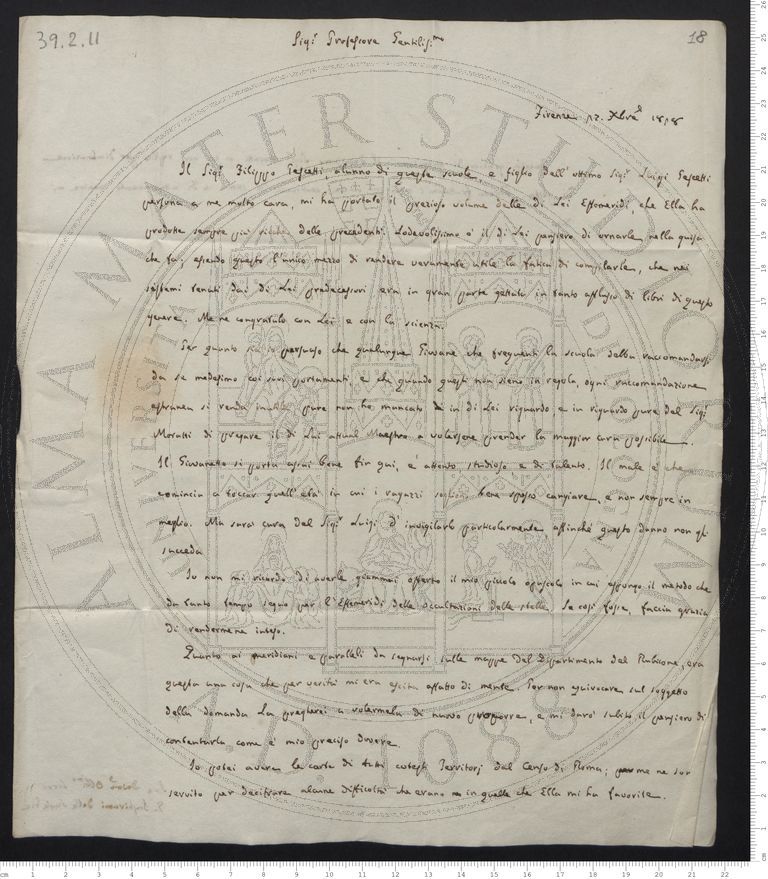 39.2.11
18
Sigr Professore Gentiliss.mo
Firenze 12. Xbre 1818
Il Sigr Filippo alunno di queste scuole, e figlio dell'ottimo Sigr Luigi
persona a me molto cara, mi ha portato il prezioso volume delle di Lei Effemeridi, che Ella ha
prodotte sempre più ricche delle precedenti. Lodevolissimo è il di Lei pensiero di ornarle nella guisa
che fa, essendo questo l'unico mezzo di rendere veramente utile la fatica di compilarle, che nei
sistemi tenuti dai di Lei predecessori era in gran parte gettata in tanto afflusso di libri di questo
genere. Me ne congratulo con Lei e con la scienza.
Per quanto sia io persuaso che qualunque Giovane che frequenti la scuola debba raccomandarsi
da se medesimo coi suoi portamenti, e che quando questi non sieno in regola, ogni raccomandazione
estranea si renda inutile pure non ho mancato in di Lei riguardo, e in riguardo pure del Sigr
Moratti di pregare il di Lui attual Maestro a volersene prender la maggior cura possibile.
Il Giovanetto si porta assai bene fin qui, è attento, studioso e di talento. Il male è che
comincia a toccar quell'età in cui i ragazzi soglion bene spesso cangiare, e non sempre in
meglio. Ma sarà cura del Sigr Luigi d'invigilarlo particolarmente affinchè questo danno non gli
succeda.
Io non mi ricordo di averle giammai offerto il mio piccolo opuscolo in cui espongo il metodo che
da tanto tempo seguo per l'Effemeridi delle occultazioni delle stelle. Se così fosse, faccia grazia
di rendermene inteso.
Quanto ai meridiani e paralleli da segnarsi sulle mappe del Dipartimento del Rubicone, era
questa una cosa che per verità mi era escita affatto di mente. Per non equivocare sul soggetto
della domanda La pregherei a volermela di nuovo proporre, e mi darò subito il pensiero di
contentarla come è mio preciso dovere.
Io potei avere le carte di tutti cotesti Territorj dal Censo di Roma; me ne son
servito per decifrare alcune difficoltà che erano in quelle che Ella mi ha favorite.
ALMA MATER STUDIORUM
A.D. 1088